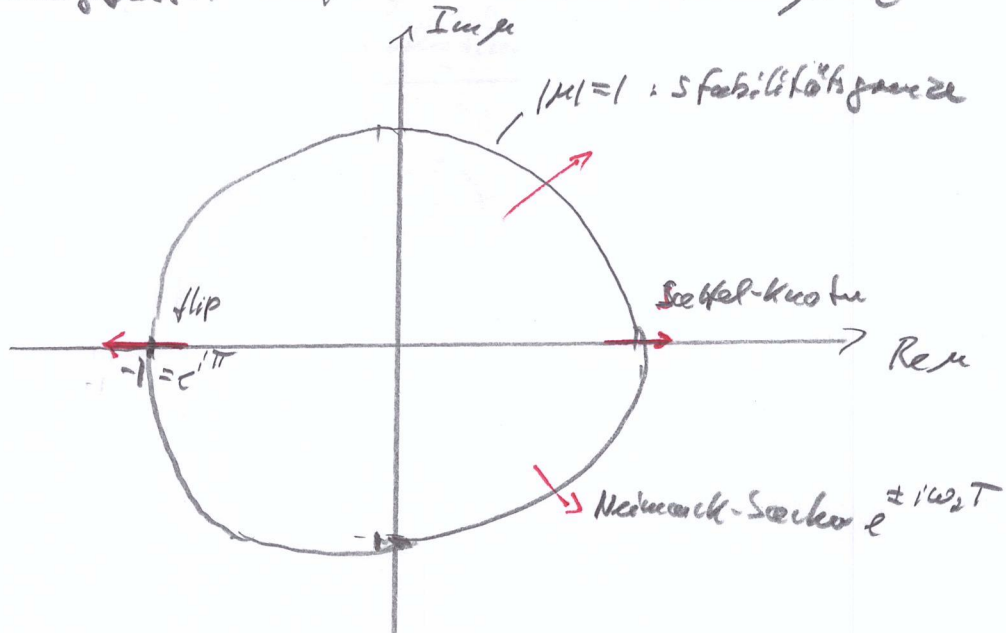 Im μ
|μ|=1 : Stabilitätsgrenze
flip
Sattel-Knoten
-1 = e^{iπ}
Re μ
Neimark-Sacker e^{± iω₂T}